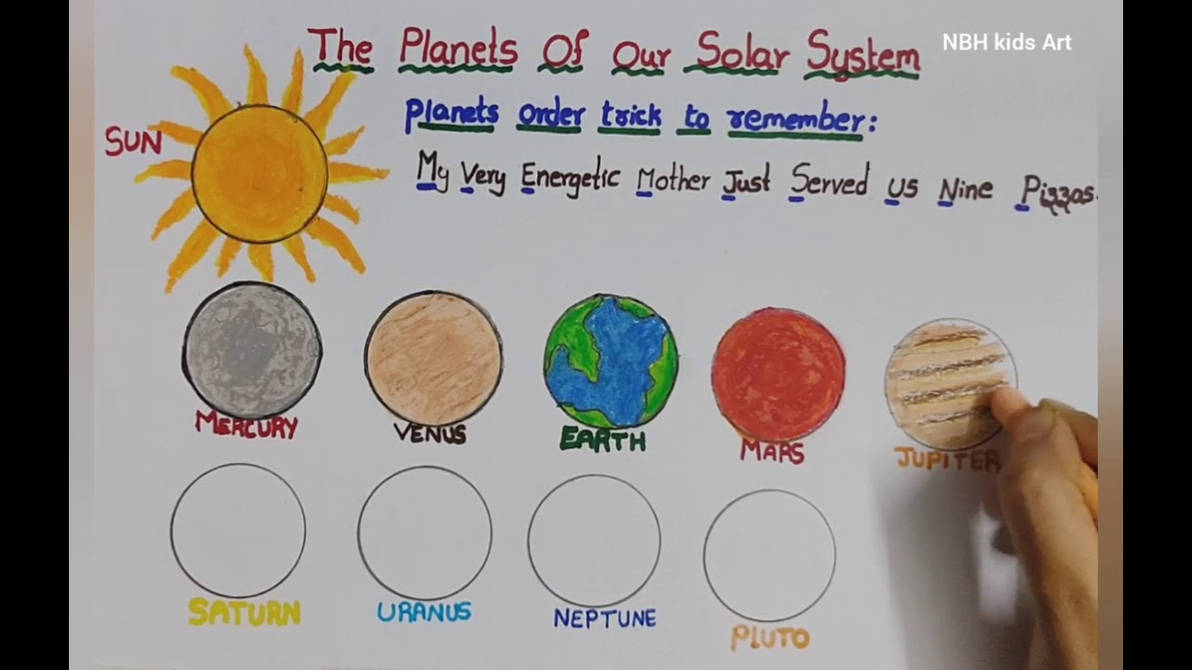 The Planets Of Our Solar System
NBH kids Art
SUN
Planets order trick to remember:
My Very Energetic Mother Just Served Us Nine Pizzas.
MERCURY
VENUS
EARTH
MARS
JUPITER
SATURN
URANUS
NEPTUNE
PLUTO